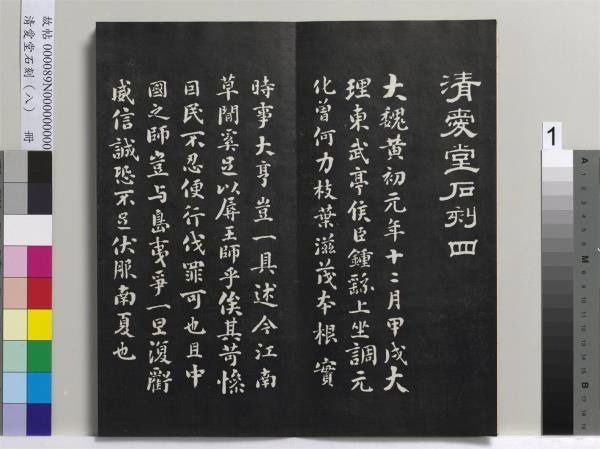 清愛堂石刻四
大魏黃初元年十二月甲戌大
理東武亭侯臣鍾繇上坐調元
化曾何力枝葉滋茂本根實
時事大亨豈一具述今江南
草間奚足以屏王師乎俟其苛慘
因民不忍便行伐罪可也且中
國之師豈与島夷爭一旦復衢
威信誠恐不足伏服南夏也
故帖 000089N000000000
清愛堂石刻（八） 冊
1
A
M
B